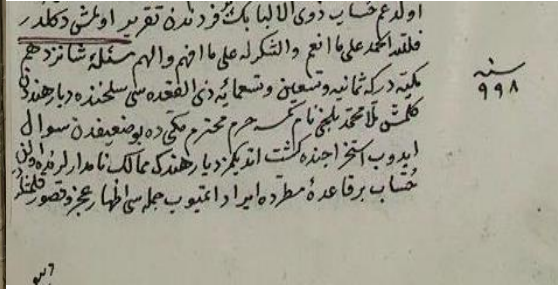 اولدعم حساب ذوى الالبابك بر فردندن تقرير اولمشى دكلدر
فلله الحمد على ما انعم والشكر له على ما افهم والهم مسئلۀ شانزدهم
مكۀ در كه ثمانيه وتسعين وتسعمائه ذى القعده سى سلخنده ديار هنددن
كلمش ملا محمد بلخى نام كمسه حرم محترم مكى ده بو ضعيفدن سوال
ايدوب استخراجنده كشت اتديكم ديار هندكه ممالك نامدارلرنده اولان
حُسّاب بر قاعدۀ مطرده ايراد اتميوب جمله سى اظهار عجز وقصور قلمشلر
سنه
٩٩٨